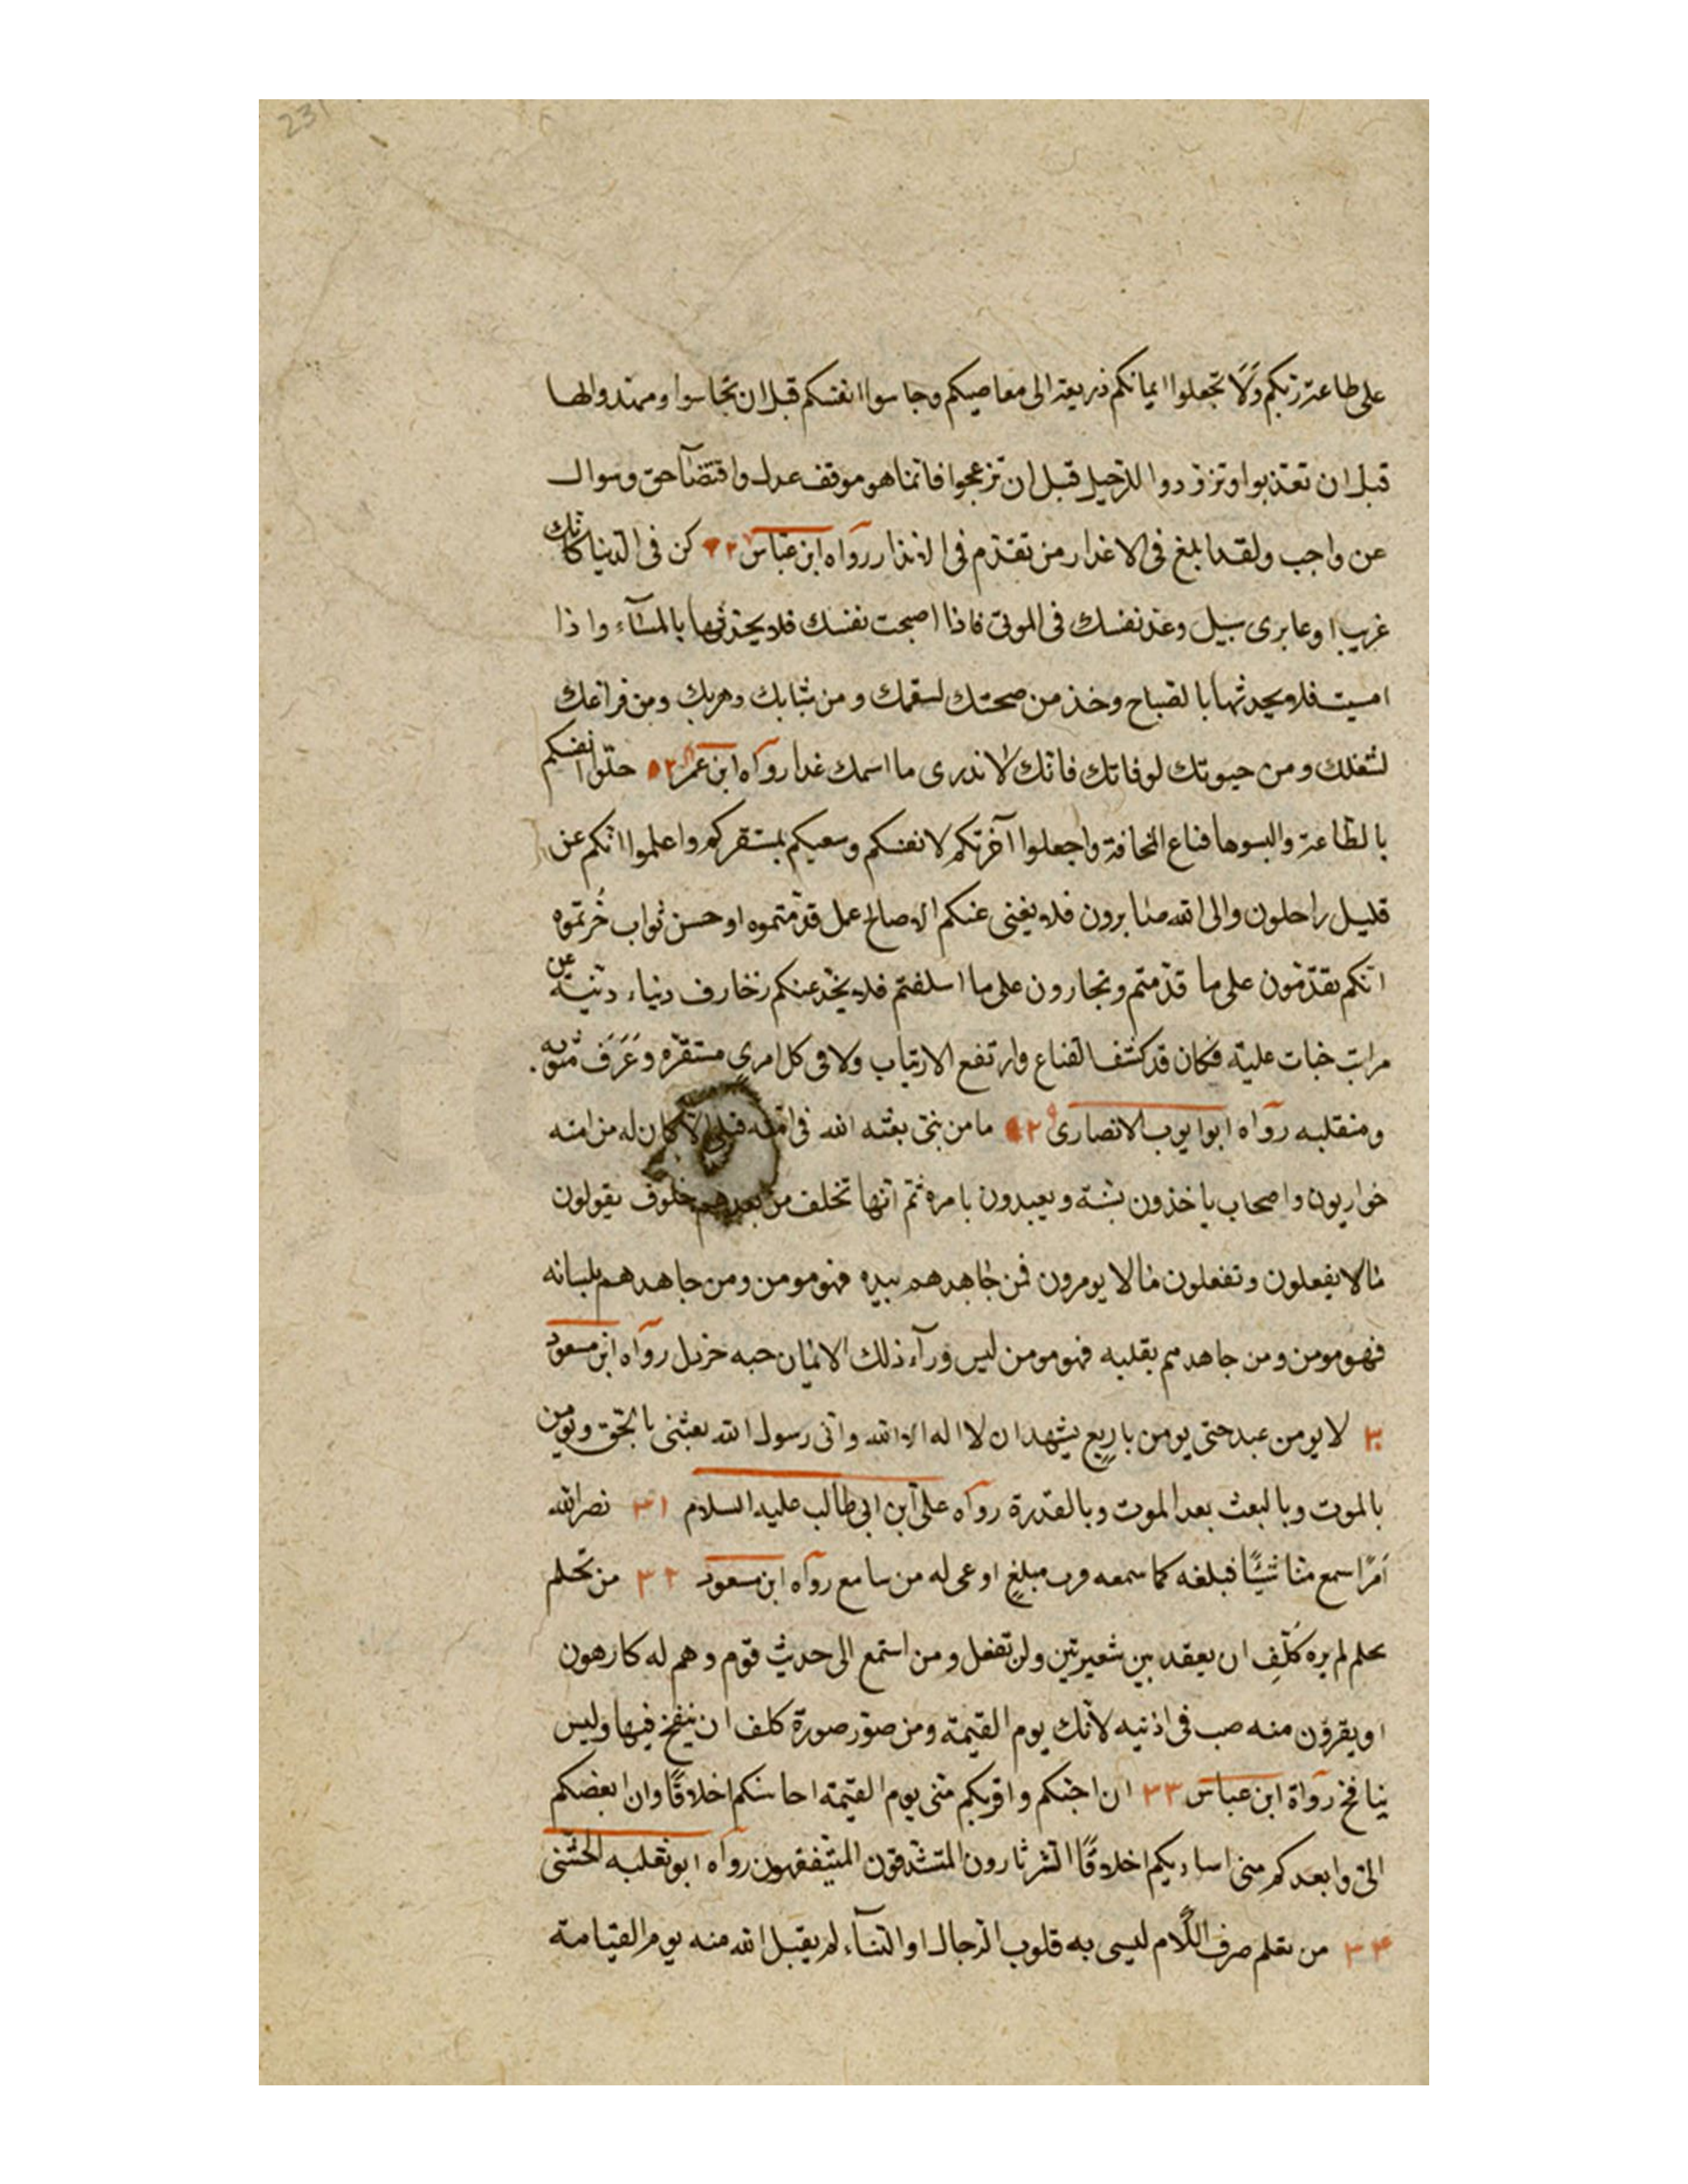 231
على طاعة ربكم وَلَا تجعلوا ايمانكم ذريعة الى معاصيكم وحاسبوا انفسكم قبل ان تحاسبوا ومهدوا لها
قبل ان تعذبوا وتزودوا للرحيل قبل ان تزعجوا فانما هو موقف عدل واقتضآ حق وسوال
عن واجب ولقد ابلغ في الاعذار من تقدم في الانذار رواه ابن عباس كن في الدنيا كانك
غريب او عابرى سبيل وعد نفسك في الموتى فاذا اصبحت نفسك فلا يحدثها بالمسآء واذا
امسيت فلا يحدثها بالصباح وخذ من صحتك لسقمك و من شبابك وهرمك ومن فراغك
لشغلك ومن حيوتك لوفاتك فانك لا تدرى ما اسمك غدا رواه ابن عمر حلوا انفسكم
بالطاعة والبسوها قناع المخافة واجعلوا آخرتكم لانفسكم وسعيكم لمستقركم واعلموا انكم عن
قليل راحلون والى الله صايرون فلا يغنى عنكم الا صالح عمل قدمتموه او حسن ثواب حُزتموه
انكم تقدمون على ما قدمتم وتجازون على ما اسلفتم فلا يخدعنكم زخارف دنياء دنية عن
مراتب جنات علية فكان قد كشف القناع وارتفع الارتياب ولاقى كل امرئ مستقره وعَرَفَ مثويه
ومنقلبه رواه ابو ايوب الانصارى ٢٩ ما من نبى بعثه الله في امته قبلى الا كان له من امته
حواريون واصحاب ياخذون بسنته ويعبدون بامره ثم انها تخلف من بعدهم خلوف يقولون
مالا يفعلون وتفعلون مالا يومرون فمن جاهدهم بيده فهو مومن ومن جاهدهم بلسانه
فهو مومن ومن جاهدهم بقلبه فهو مومن ليس ورآء ذلك الايمان حبه خردل رواه ابن مسعود
٣٠ لا يومن عبد حتى يومن باربع يشهد ان لا اله الا الله وانى رسول الله بعثنى بالحق ويومن
بالموت وبالبعث بعد الموت وبالقدرة رواه على ابن ابى طالب عليه السلام ٣١ نصر الله
اَمرًا سمع منا شيئًا فبلغه كما سمعه فرب مبلغ اوعى له من سامع رواه ابن مسعود ٣٢ من تحلم
بحلم لم يره كُلّفِ ان يعقد بين شعيرتين ولن تفعل ومن استمع الى حديث قوم وهم له كارهون
او يفرون منه صب في اذنيه لآنك يوم القيمة ومن صور صورة كلف ان ينفخ فيها وليس
بنافخ رواة ابن عباس ٣٣ ان احبكم واقربكم منى يوم القيمة احاسنكم اخلاقًا وان ابغضكم
الىّ وابعدكم منى اساويكم اخلاقًا الثرثارون المتشدقون المتفيهقون رواه ابو ثعلبه الخشنى
٣٤ من تعلم صرف الكلام ليسبى به قلوب الرجال او النسآء لم يقبل الله منه يوم القيامة